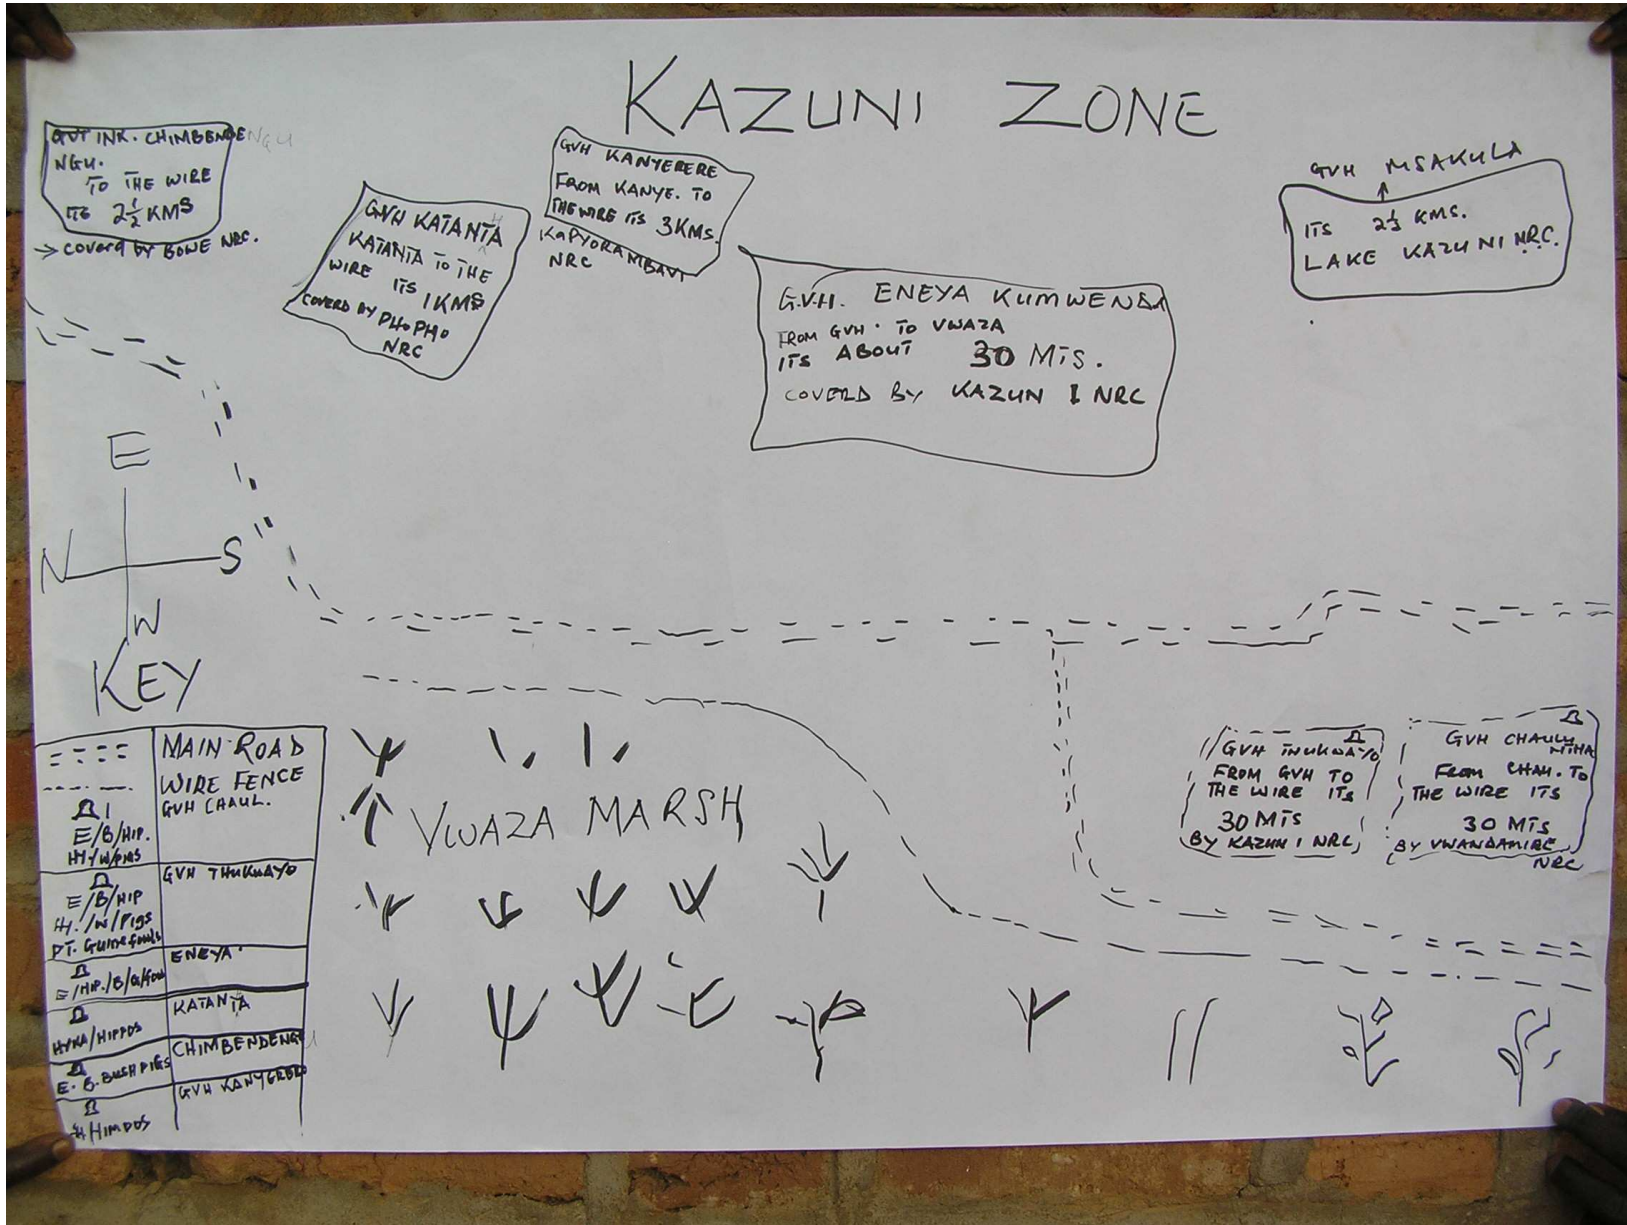 KAZUNI ZONE
GVT INK. CHIMBENDE NGU
NGU.
TO THE WIRE
ITS 2 1/2 KMS
→ COVERD BY BOWE NRC.
GVH KATANTA
KATANTA TO THE
WIRE ITS 1KMS
COVERD BY PHOPHO
NRC
GVH KANYERERE
FROM KANYE. TO
THE WIRE ITS 3KMS.
KAPYORAMBAVI
NRC
G.V.H. ENEYA KUMWENDA
FROM GVH. TO VWAZA
ITS ABOUT 30 MTS.
COVERD BY KAZUNI NRC
GVH MSAKULA
ITS 2 1/2 KMS.
LAKE KAZUNI NRC.
E
N S
W
KEY
MAIN ROAD
WIRE FENCE
GVH CHAUL.
E/B/HIP.
HY/W/PIGS
GVH THUKUAYO
E/B/HIP
HY./W/Pigs
PT. Guinefowls
ENEYA
E/HIP./B/G/Fow
KATANTA
HYNA/HIPPOS
CHIMBENDENGU
E. B. BUSHPIGS
GVH KANYERERE
VWAZA MARSH
GVH THUKWAYO
FROM GVH TO
THE WIRE ITS
30 MTS
BY KAZUNI NRC
GVH CHAULU
MTHA
FROM CHAU. TO
THE WIRE ITS
30 MTS
BY VWANDAMIRE
NRC